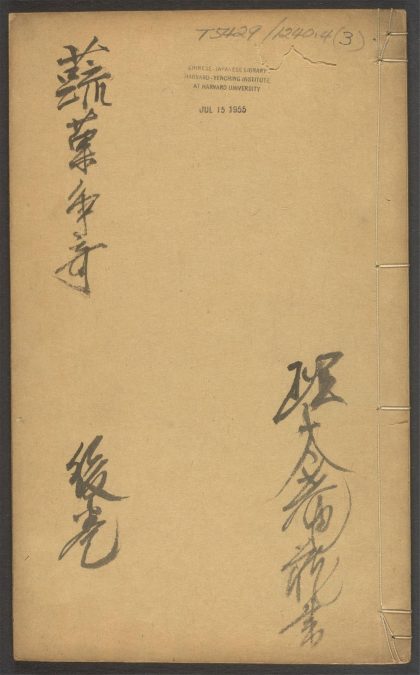 T5429/1240.4(3)
CHINESE-JAPANESE LIBRARY
HARVARD-YENCHING INSTITUTE
AT HARVARD UNIVERSITY
JUL 15 1955
蔬菓争奇
後卷